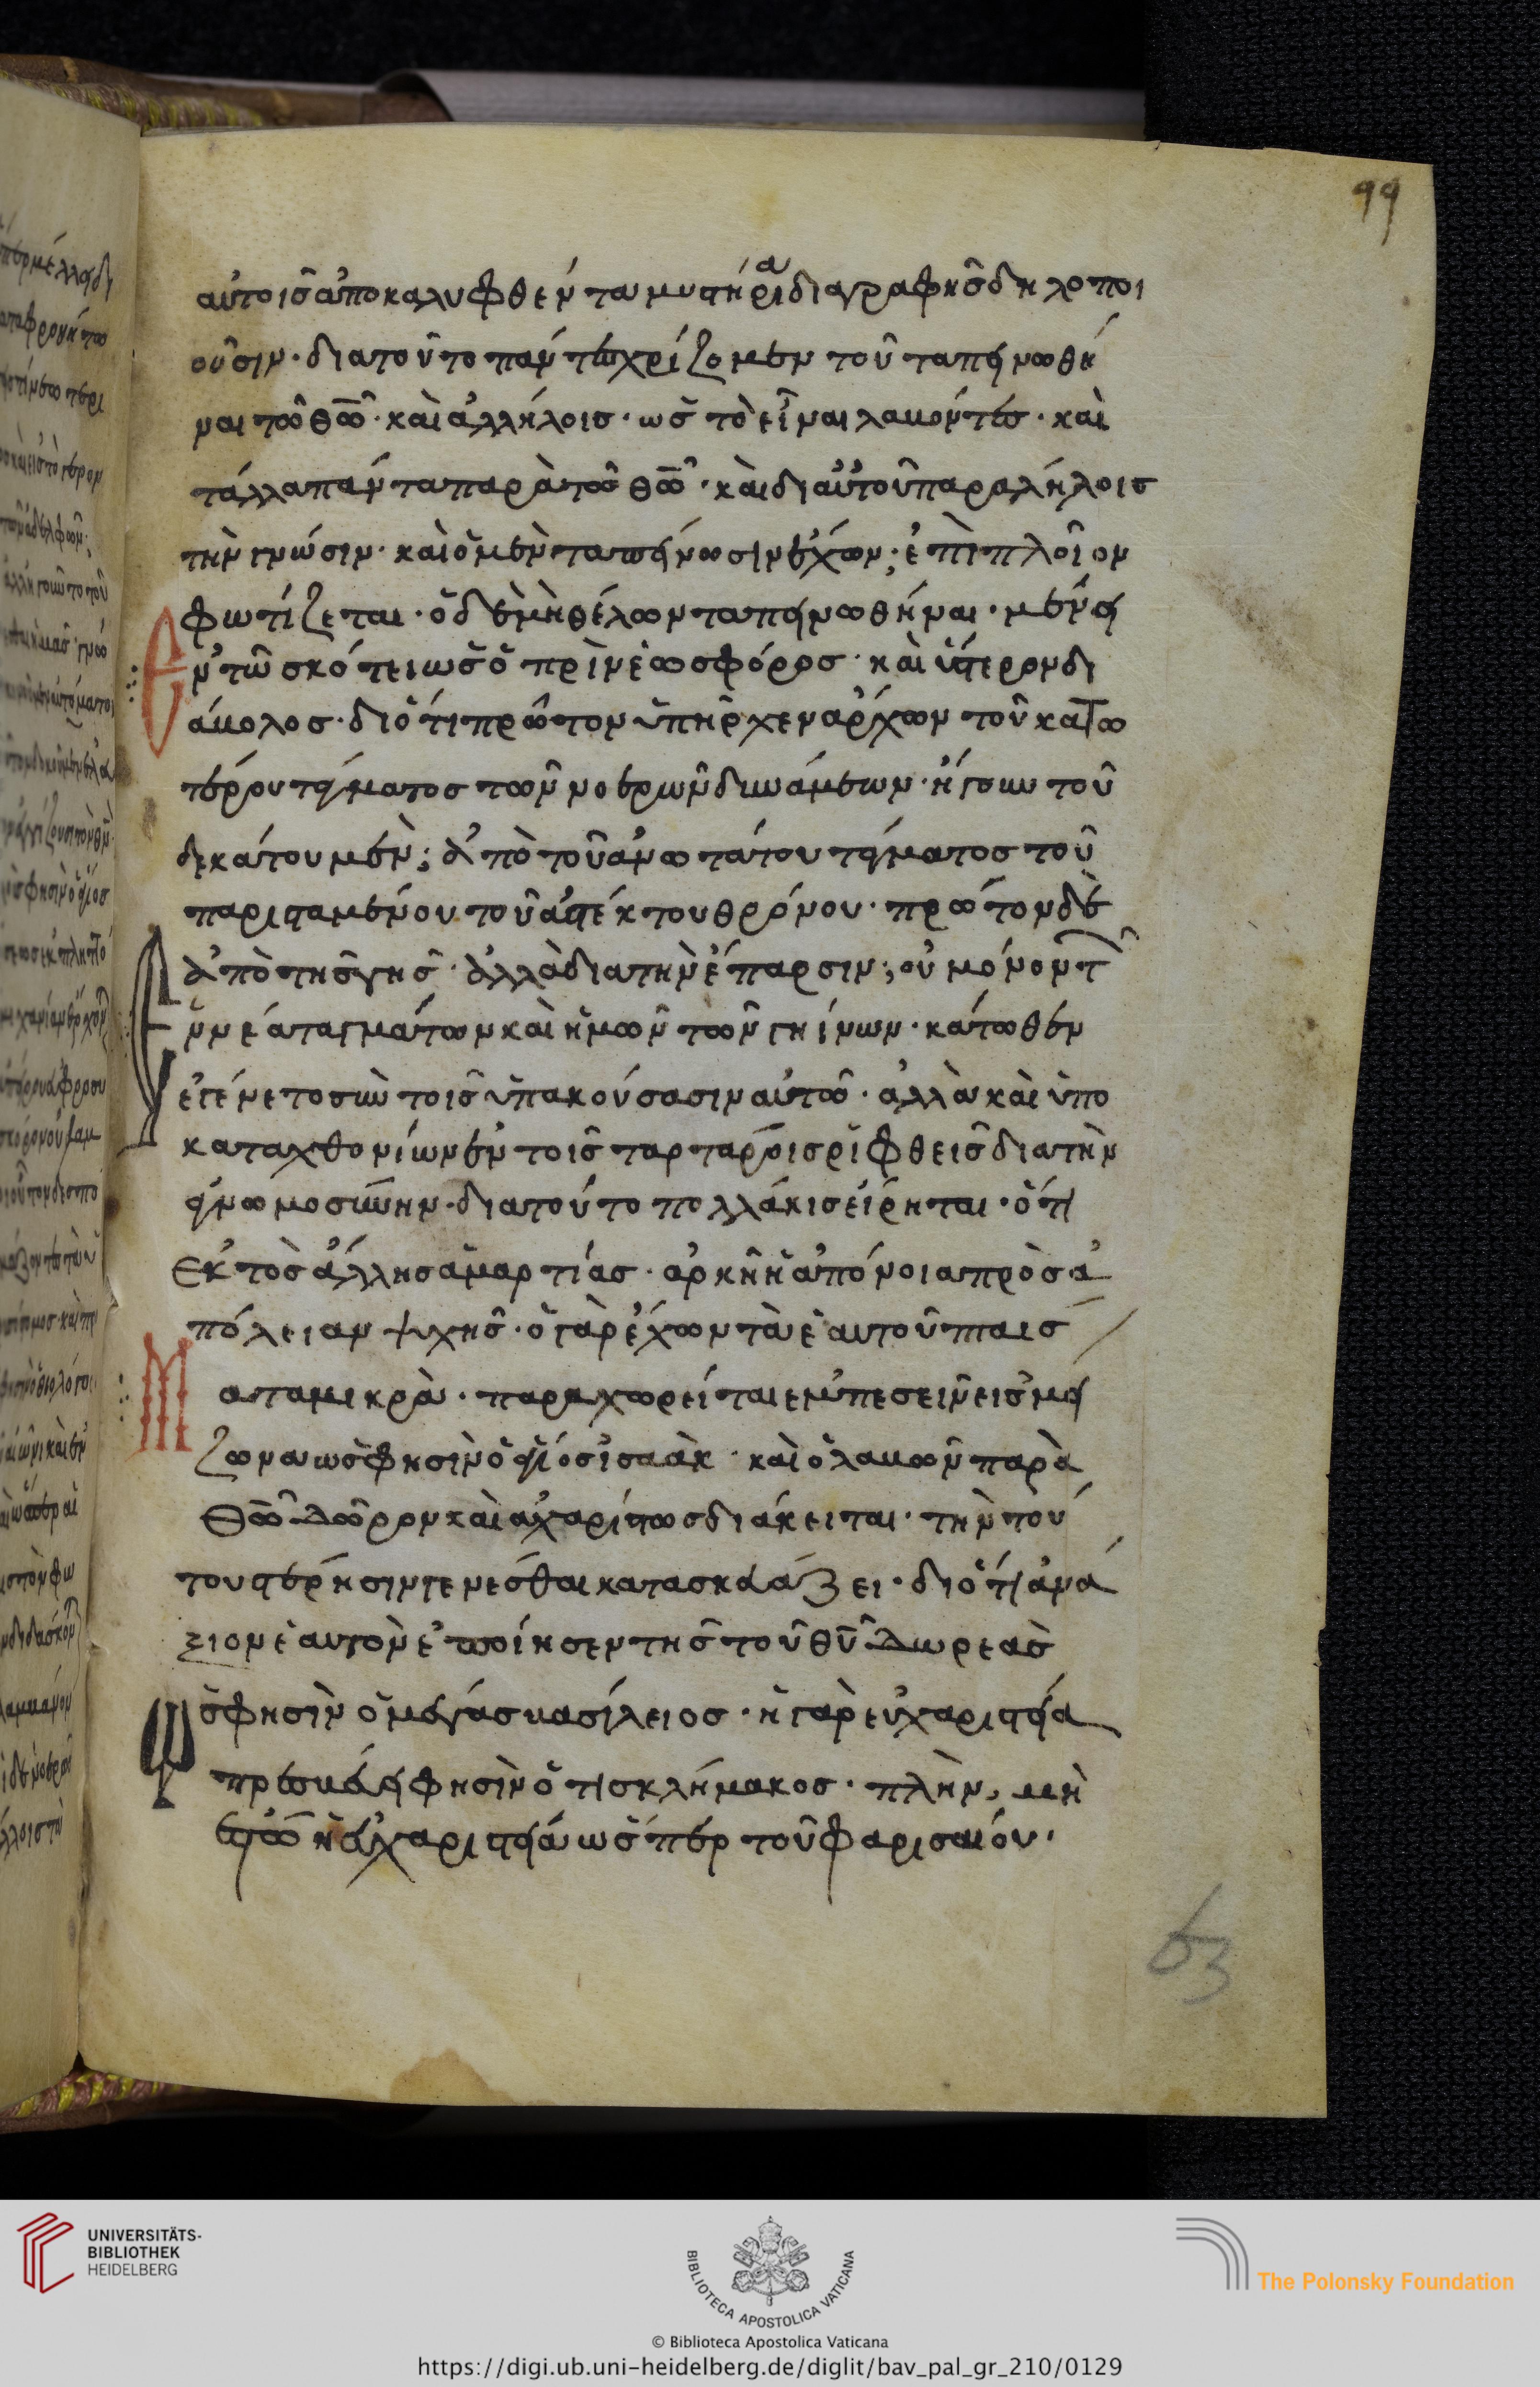 99
αὐτοῖς ἀποκαλυφθέντα μυστήρια διαγραφῆς δηλοποι
οῦσιν· διατοῦτο πάντες χρίζομεν τοῦ ταπεινωθῆ
ναι τῶ θῶ· καὶ ἀλλήλοις· ὡς τὸ εἶναι λαβόντες· καὶ
τάλλα πάντα παρὰ τοῦ θῦ· καὶ δι αὐτοῦ παραλήλοις
τὴν γνῶσιν· καὶ ὁ μὲν ταπείνωσιν ἔχων, ἐπιπλοῖον
φωτίζεται· ὁ δὲ μὴ θέλων ταπεινωθῆναι· μένει
Ἐν τῶ σκότει ὡς ὁ πρὶν ἑωσφόρος· καὶ ὕστερον δι
άβολος· διότι πρῶτον ὑπῆρχεν ἄρχων τοῦ κατω
τέρου τάγματος τῶν νοερῶν δυνάμεων· ἤγουν τοῦ
δεκάτου μὲν, ἀπὸ τοῦ ἀνωτάτου τάγματος τοῦ
παρισταμένου τοῦ ἀστέκτου θρόνου· πρῶτον δὲ
ἀπὸ τῆς γῆς· ἀλλὰ διατὴν ἔπαρσιν, οὐ μόνον τ
ῶν νέα ταγμάτων καὶ ἡμῶν τῶν γηίνων· κάτωθεν
ἐγένετο σὺν τοῖς ὑπακούσασιν αὐτῶ· ἀλλὰ καὶ ὑπο
καταχθονίων ἐν τοῖς ταρτάροις ῥιφθεὶς διατὴν
ἀγνωμοσύνην· διατούτο πολλάκις εἴρηται· ὅτι
Ἐκτὸς ἄλλης ἁμαρτίας· ἀρκῆ ἡ ἀπόνοια πρὸς ἀ
πόλειαν ψυχῆς· ὁ γὰρ ἔχων τὰ ἑαυτοῦ πταισ
Ματα μικρὰ· παραχωρείται ἐμπεσεῖν εἰς μεί
ζονα ὡς φησὶν ὁ ἅγιος ἰσαὰκ· καὶ ὁ λαβὼν παρὰ
Θῦ δῶρον καὶ ἀχαρίστως διάκειται· τὴν τού
του στέρησιν γενέσθαι κατασκευάζει· διότι ἀνά
ξιον ἑαυτὸν ἐποίησεν τῆς τοῦ θῦ δωρεᾶς
Ὥς φησὶν ὁ μέγας βασίλειος· ἡ γὰρ εὐχαριστεία
πρεσβεύει φησὶν ὁ τῆς κλήμακος· πλὴν, μὴ
ἔστω ἡ εὐχαριστεία ὥσπερ τοῦ φαρισαίου·
UNIVERSITÄTS-
BIBLIOTHEK
HEIDELBERG
BIBLIOTECA APOSTOLICA VATICANA
The Polonsky Foundation
© Biblioteca Apostolica Vaticana
https://digi.ub.uni-heidelberg.de/diglit/bav_pal_gr_210/0129